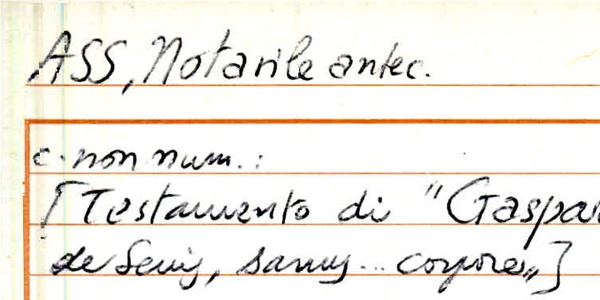 ASS, Notarile antec.
c. non num.:
[Testamento di "Gaspar
de Senis, sanus... corpore"]